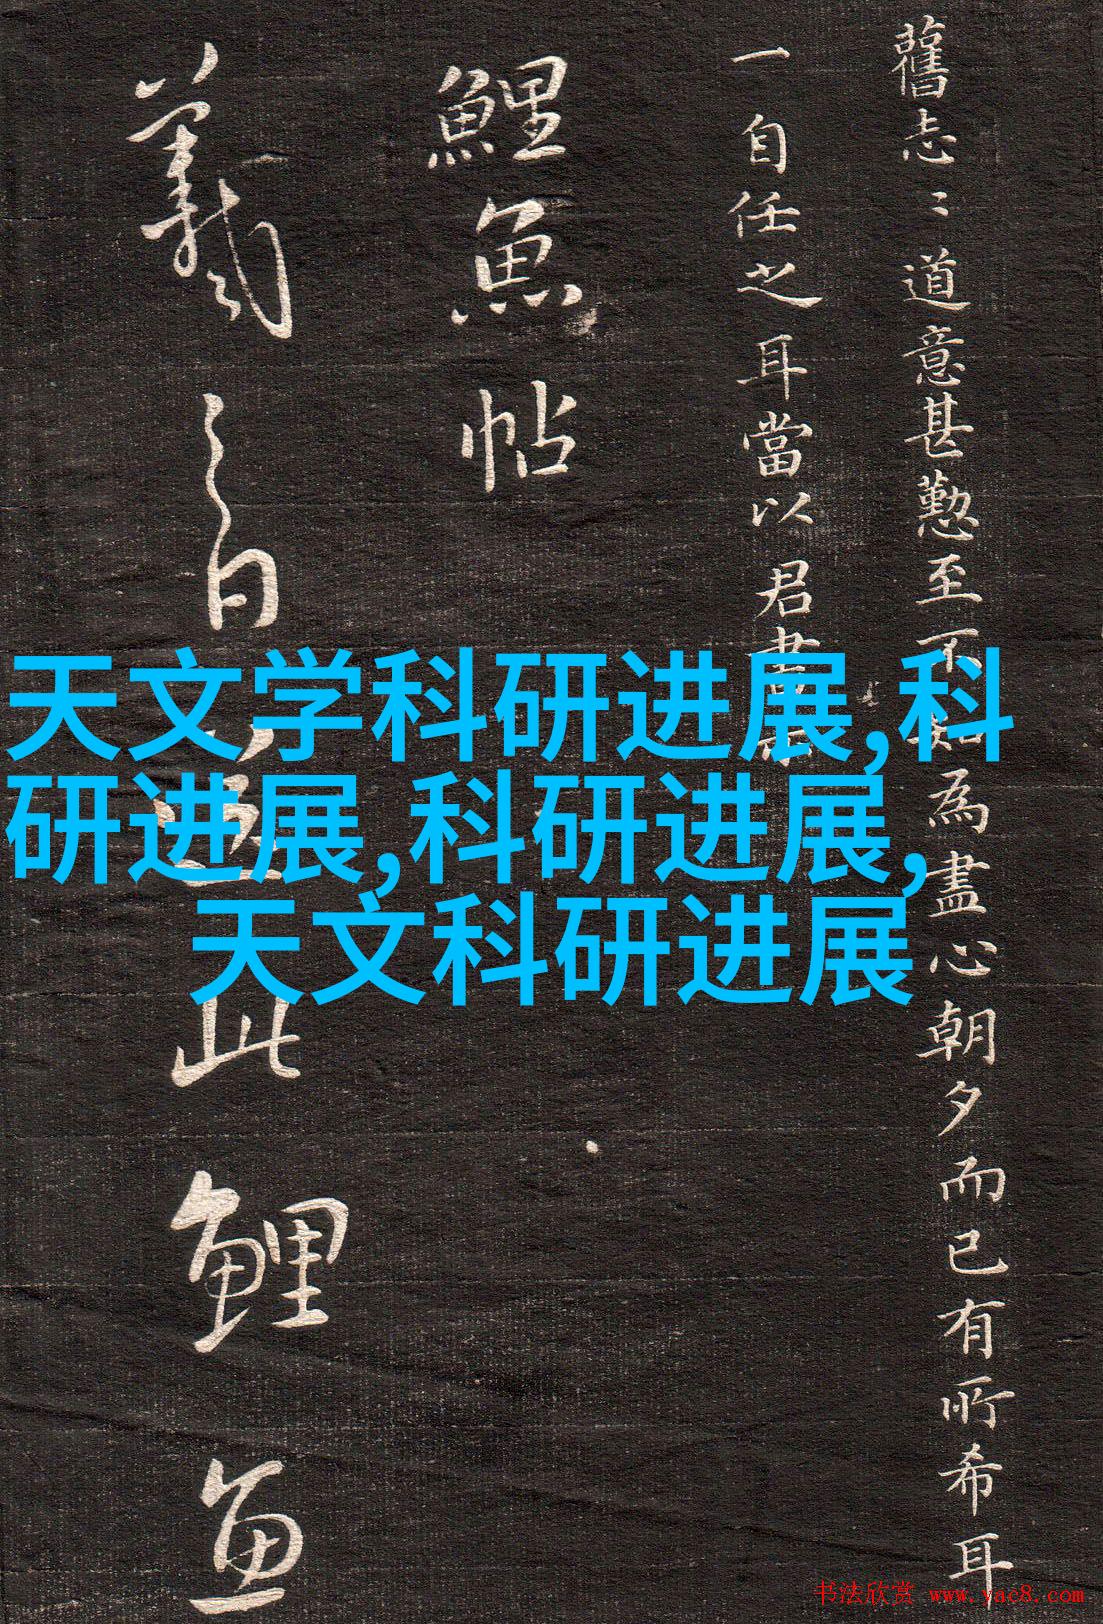 舊志〻道意甚懃至不為盡心朝夕而已有所希耳
一自任之耳當以君書
鯉魚帖
羲之白此鯉魚
天文学科研进展,科
研进展,科研进展,
天文科研进展
书法欣赏 www.yac8.com